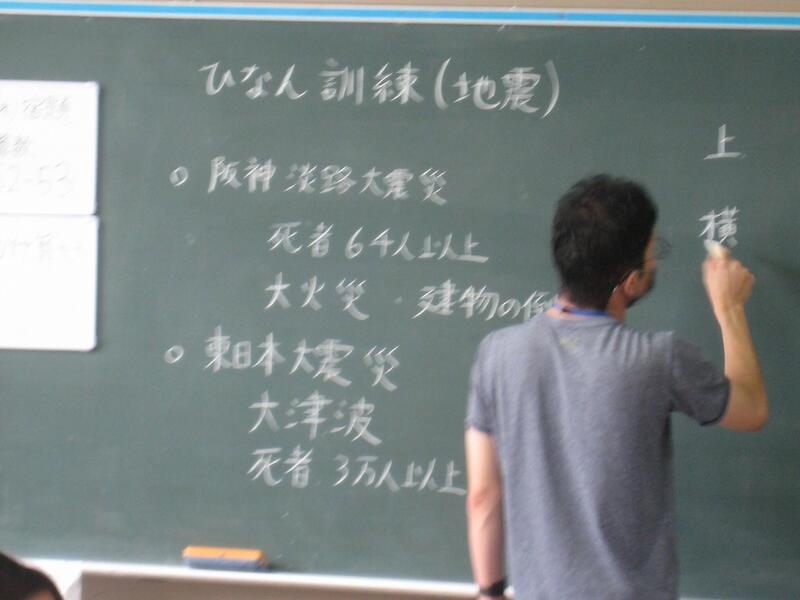 ひなん訓練(地震)
○ 阪神淡路大震災
死者64人以上
大火災・建物の倒
○ 東日本大震災
大津波
死者 3万人以上
上
横